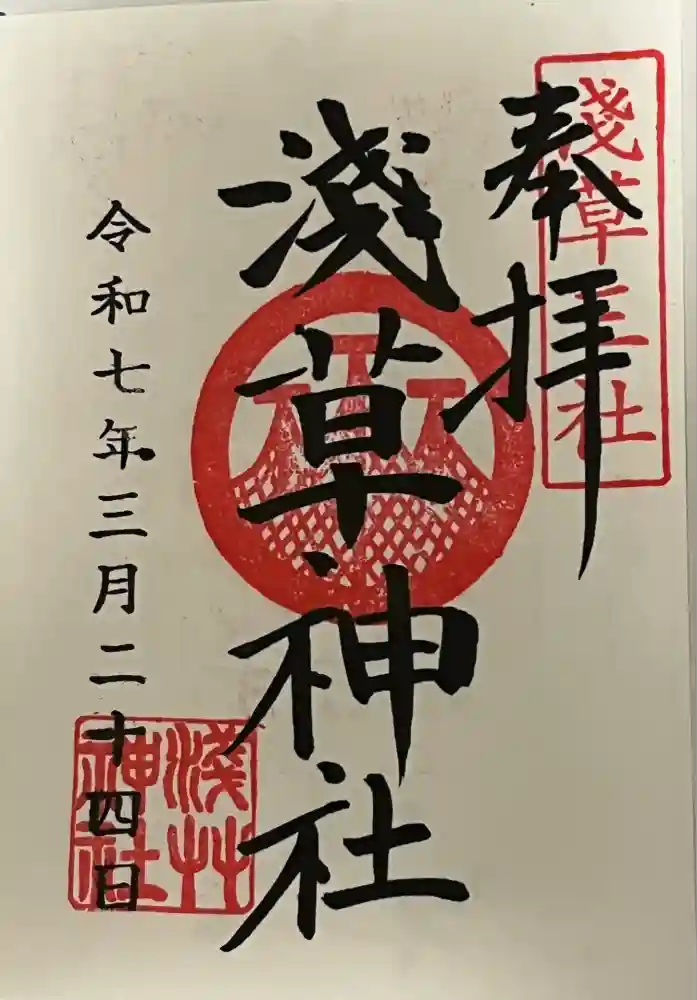 奉拝
淺草三社
淺草神社
令和七年三月二十四日
淺艸
神社